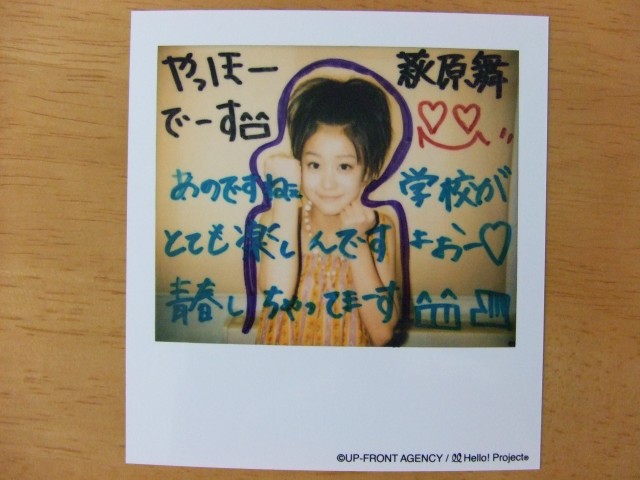 やっほー
でーす
萩原舞
あのですねぇ 学校が
とても楽しんですょぉー♡
青春しちゃってまーす
©UP-FRONT AGENCY / Hello! Project®